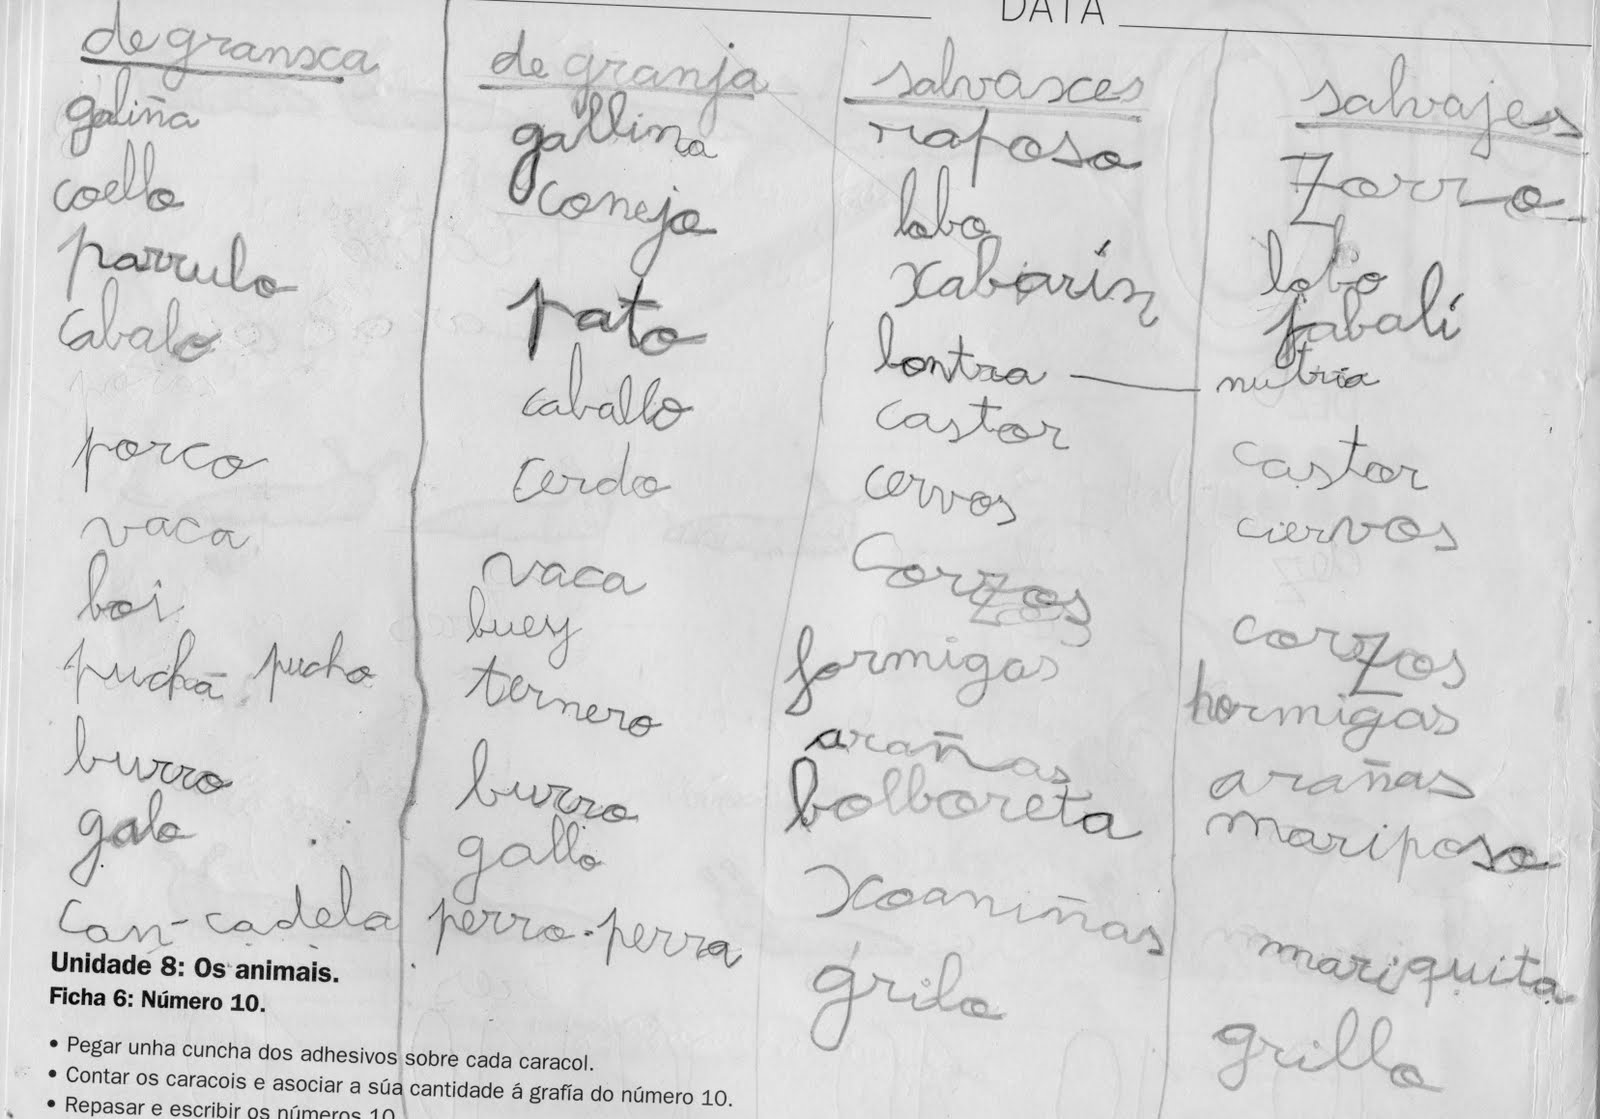 DATA
de granxa
galiña
coello
parrulo
cabalo
porco
vaca
boi
puchã pucho
burro
galo
can-cadela
de granja
gallina
conejo
pato
caballo
cerdo
vaca
buey
ternero
burro
gallo
perro-perra
salvaxes
raposo
lobo
xabarín
lontra
castor
cervos
Corzos
formigas
arañas
bolboreta
xoaniñas
grilo
salvajes
Zorro
lobo
jabalí
nutria
castor
ciervos
corzos
hormigas
arañas
mariposa
mariquita
grillo
Unidade 8: Os animais.
Ficha 6: Número 10.
• Pegar unha cuncha dos adhesivos sobre cada caracol.
• Contar os caracois e asociar a súa cantidade á grafía do número 10.
• Repasar e escribir os números 10